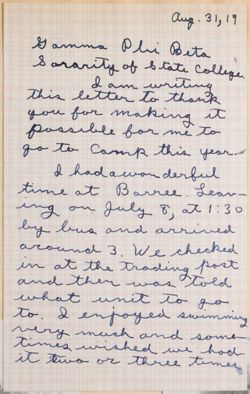 Aug. 31, 19
Gamma Phi Beta
Sorarity of State College
I am writing
this letter to thank
you for making it
possible for me to
go to Camp this year.
I had a wonderful
time at Barree. Leav-
ing on July 8, at 1:30
by bus and arrived
around 3. We checked
in at the trading post
and then was told
what unit to go
to. I enjoyed swimming
very much and some-
times wished we had
it two or three times